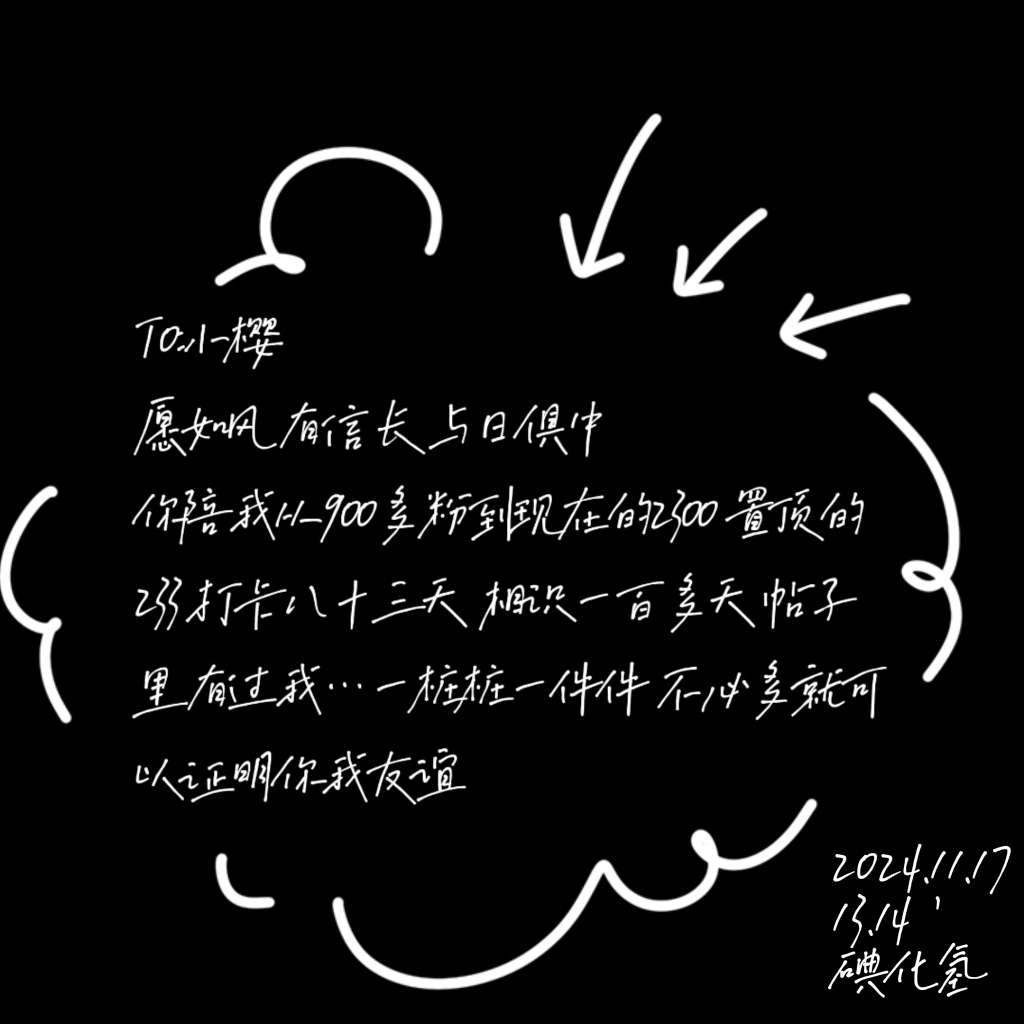 TO:小樱
愿如风有信长与日俱中
你陪我从900多粉到现在的2300置顶的
233打卡八十三天相识一百多天帖子
里有过我…一桩桩一件件不必多就可
以证明你我友谊
2024.11.17
13.14'
碘化氢